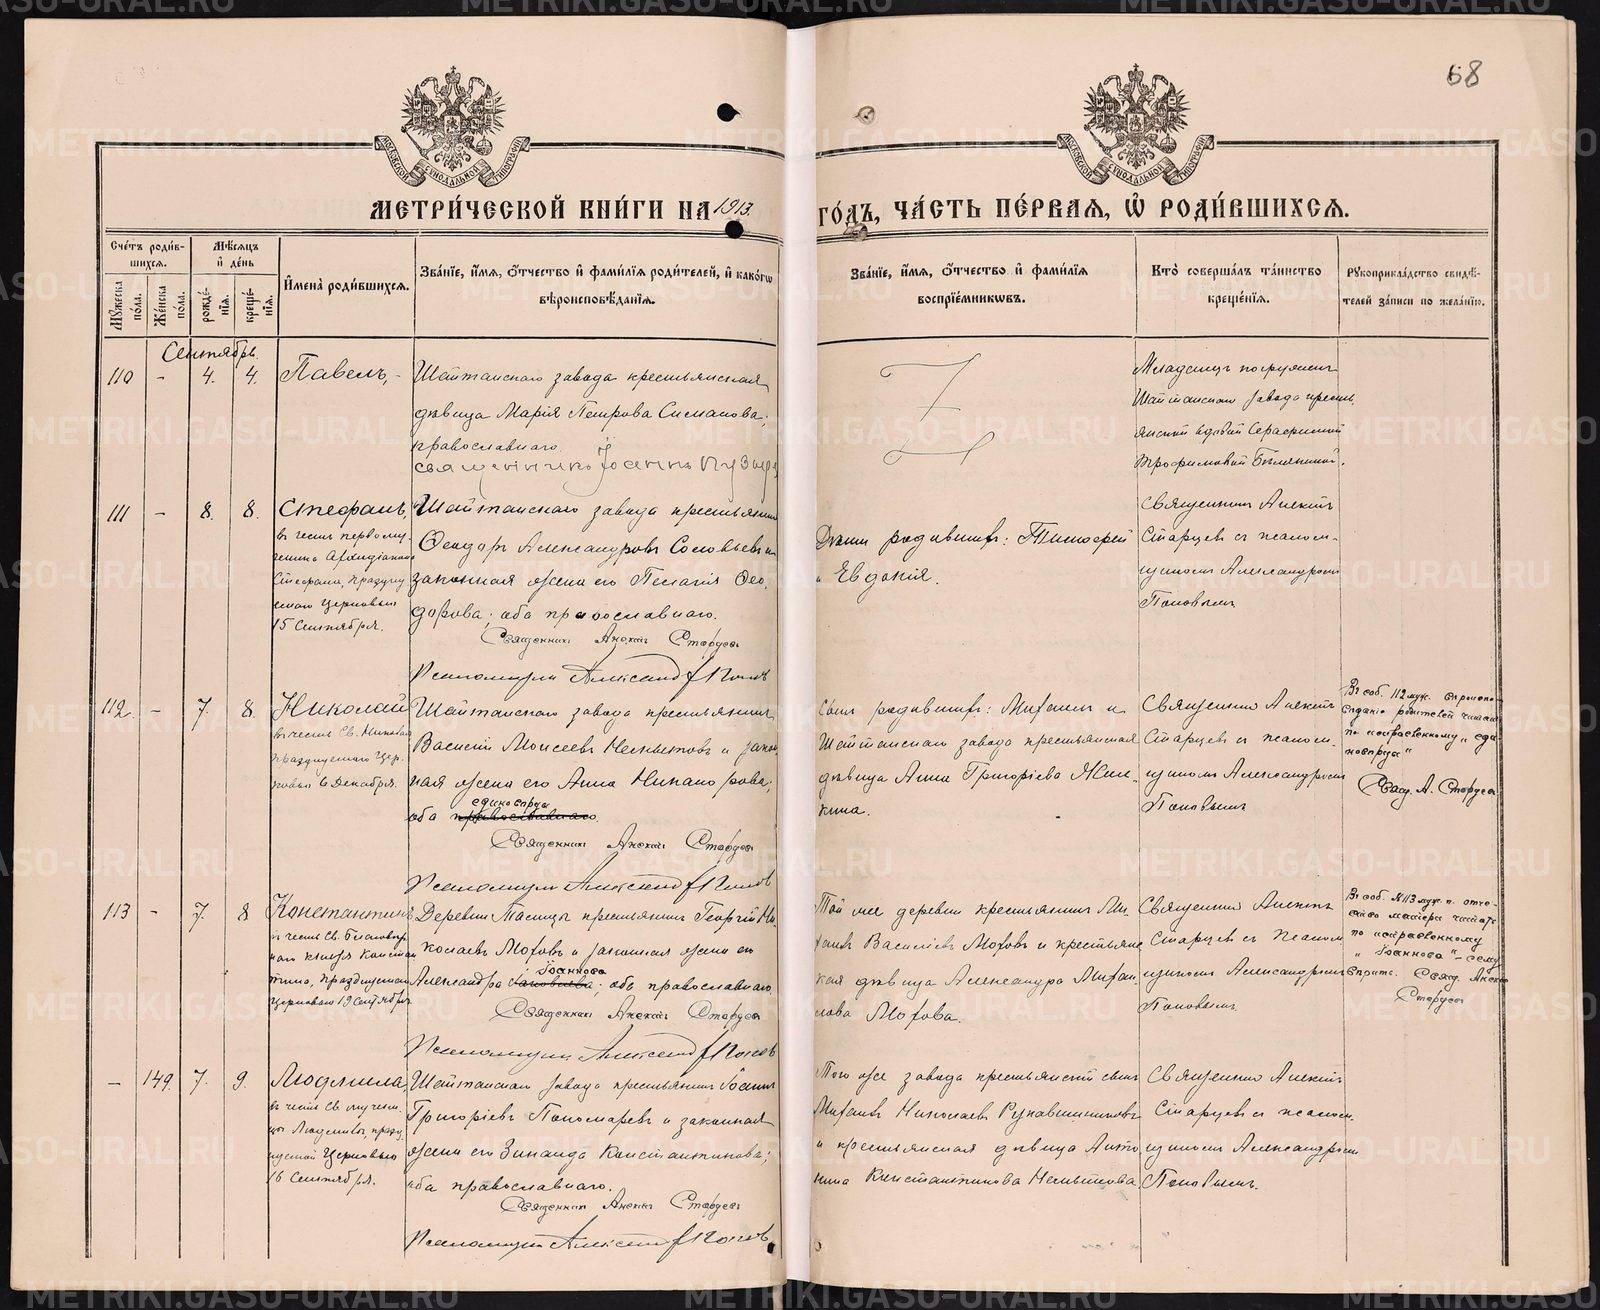 68
МЕТРИ́ЧЕСКОЙ КНИ́ГИ НА 1913. ГО́ДЪ, ЧА́СТЬ ПЕ́РВАЯ, Ѡ҆ РОДИ́ВШИХСЯ.
Счетъ родив-
шихся.
Мѣсяцъ
и день
Мужеска
пола.
Женска
пола.
рожде-
нія.
креще-
нія.
Имена родившихся.
Званіе, имя, отчество и фамилія родителей, и какогѡ
вѣроисповѣданія.
Званіе, имя, отчество и фамилія
воспріемникѡвъ.
Кто совершалъ таинство
крещенія.
Рукоприкладство свидѣ-
телей записи по желанію.
Сентябрь.
110 - 4. 4. Павелъ, -
Шайтанскаго завода крестьянская
дѣвица Марія Петрова Симанова,
православнаго.
священникъ Іоаннъ
Младенецъ погруженъ
Шайтанскаго завода кресть-
янской вдовой Серафимой
Трофимовой
111 - 8. 8. Стефанъ,
въ честь перво му-
ченика Архидіакона
Стефана, празднуе-
маго Церковью
15 Сентября.
Шайтанскаго завода крестьянинъ
Ѳеодоръ Александровъ Соловьевъ и
законная жена его Пелагія Ѳео-
дорова; оба православнаго.
Священникъ Алексій Старцевъ
Псаломщикъ Александръ Поповъ
Дѣти родившихъ: Тимофей
и Евдокія.
Священникъ Алексій
Старцевъ съ псалом-
щикомъ Александромъ
Поповымъ
112. - 7. 8. Николай
въ честь Св. Николая
празднуемаго Цер-
ковью 6 Декабря.
Шайтанскаго завода крестьянинъ
Василій Моисеевъ и закон-
ная жена его Анна Никанорова;
единоверца
оба православнаго.
Священникъ Алексій Старцевъ
Псаломщикъ Александръ Поповъ
Сынъ родившихъ: Михаилъ и
Шайтанскаго завода крестьянская
дѣвица Анна Григоріева Жил-
кина.
Священникъ Алексій
Старцевъ съ псалом-
щикомъ Александромъ
Поповымъ
Въ соб. 112 муж. вѣроиспо-
вѣданіе родителей читать
по исправленному „еди-
новерца“
Свящ. А. Старцевъ
113 - 7. 8 Константинъ
въ честь Св. Благовѣр-
наго князя Констан-
тина, празднуемаго
Церковью 19 Сентября
Деревни Талицы крестьянинъ Георгій Ни-
колаевъ Моховъ и законная жена его
Іоаннова
Александра Іаковлева; оба православнаго
Священникъ Алексій Старцевъ
Псаломщикъ Александръ Поповъ
Той же деревни крестьянинъ Ми-
хаилъ Василіевъ Моховъ и крестьянс-
кая дѣвица Александра Михаи-
лова Мохова.
Священникъ Алексій
Старцевъ съ Псалом-
щикомъ Александромъ
Поповымъ.
Въ соб. №113 муж. п. отче-
ство матери читать
по исправленному
„Іоаннова“ - сему
вѣрить. Свящ. Алексій
Старцевъ
- 149. 7. 9. Людмила,
въ честь Св. мучени-
цы Людмилы, празд-
нуемой Церковью
16 Сентября.
Шайтанскаго завода крестьянинъ Іоаннъ
Григоріевъ Пономаревъ и законная
жена его Зинаида Константинова;
оба православнаго.
Священникъ Алексій Старцевъ
Псаломщикъ Александръ Поповъ
Того же завода крестьянскій сынъ
Михаилъ Николаевъ Рукавишниковъ
и крестьянская дѣвица Анто-
нина Константинова
Священникъ Алексій
Старцевъ съ псалом-
щикомъ Александромъ
Поповымъ.